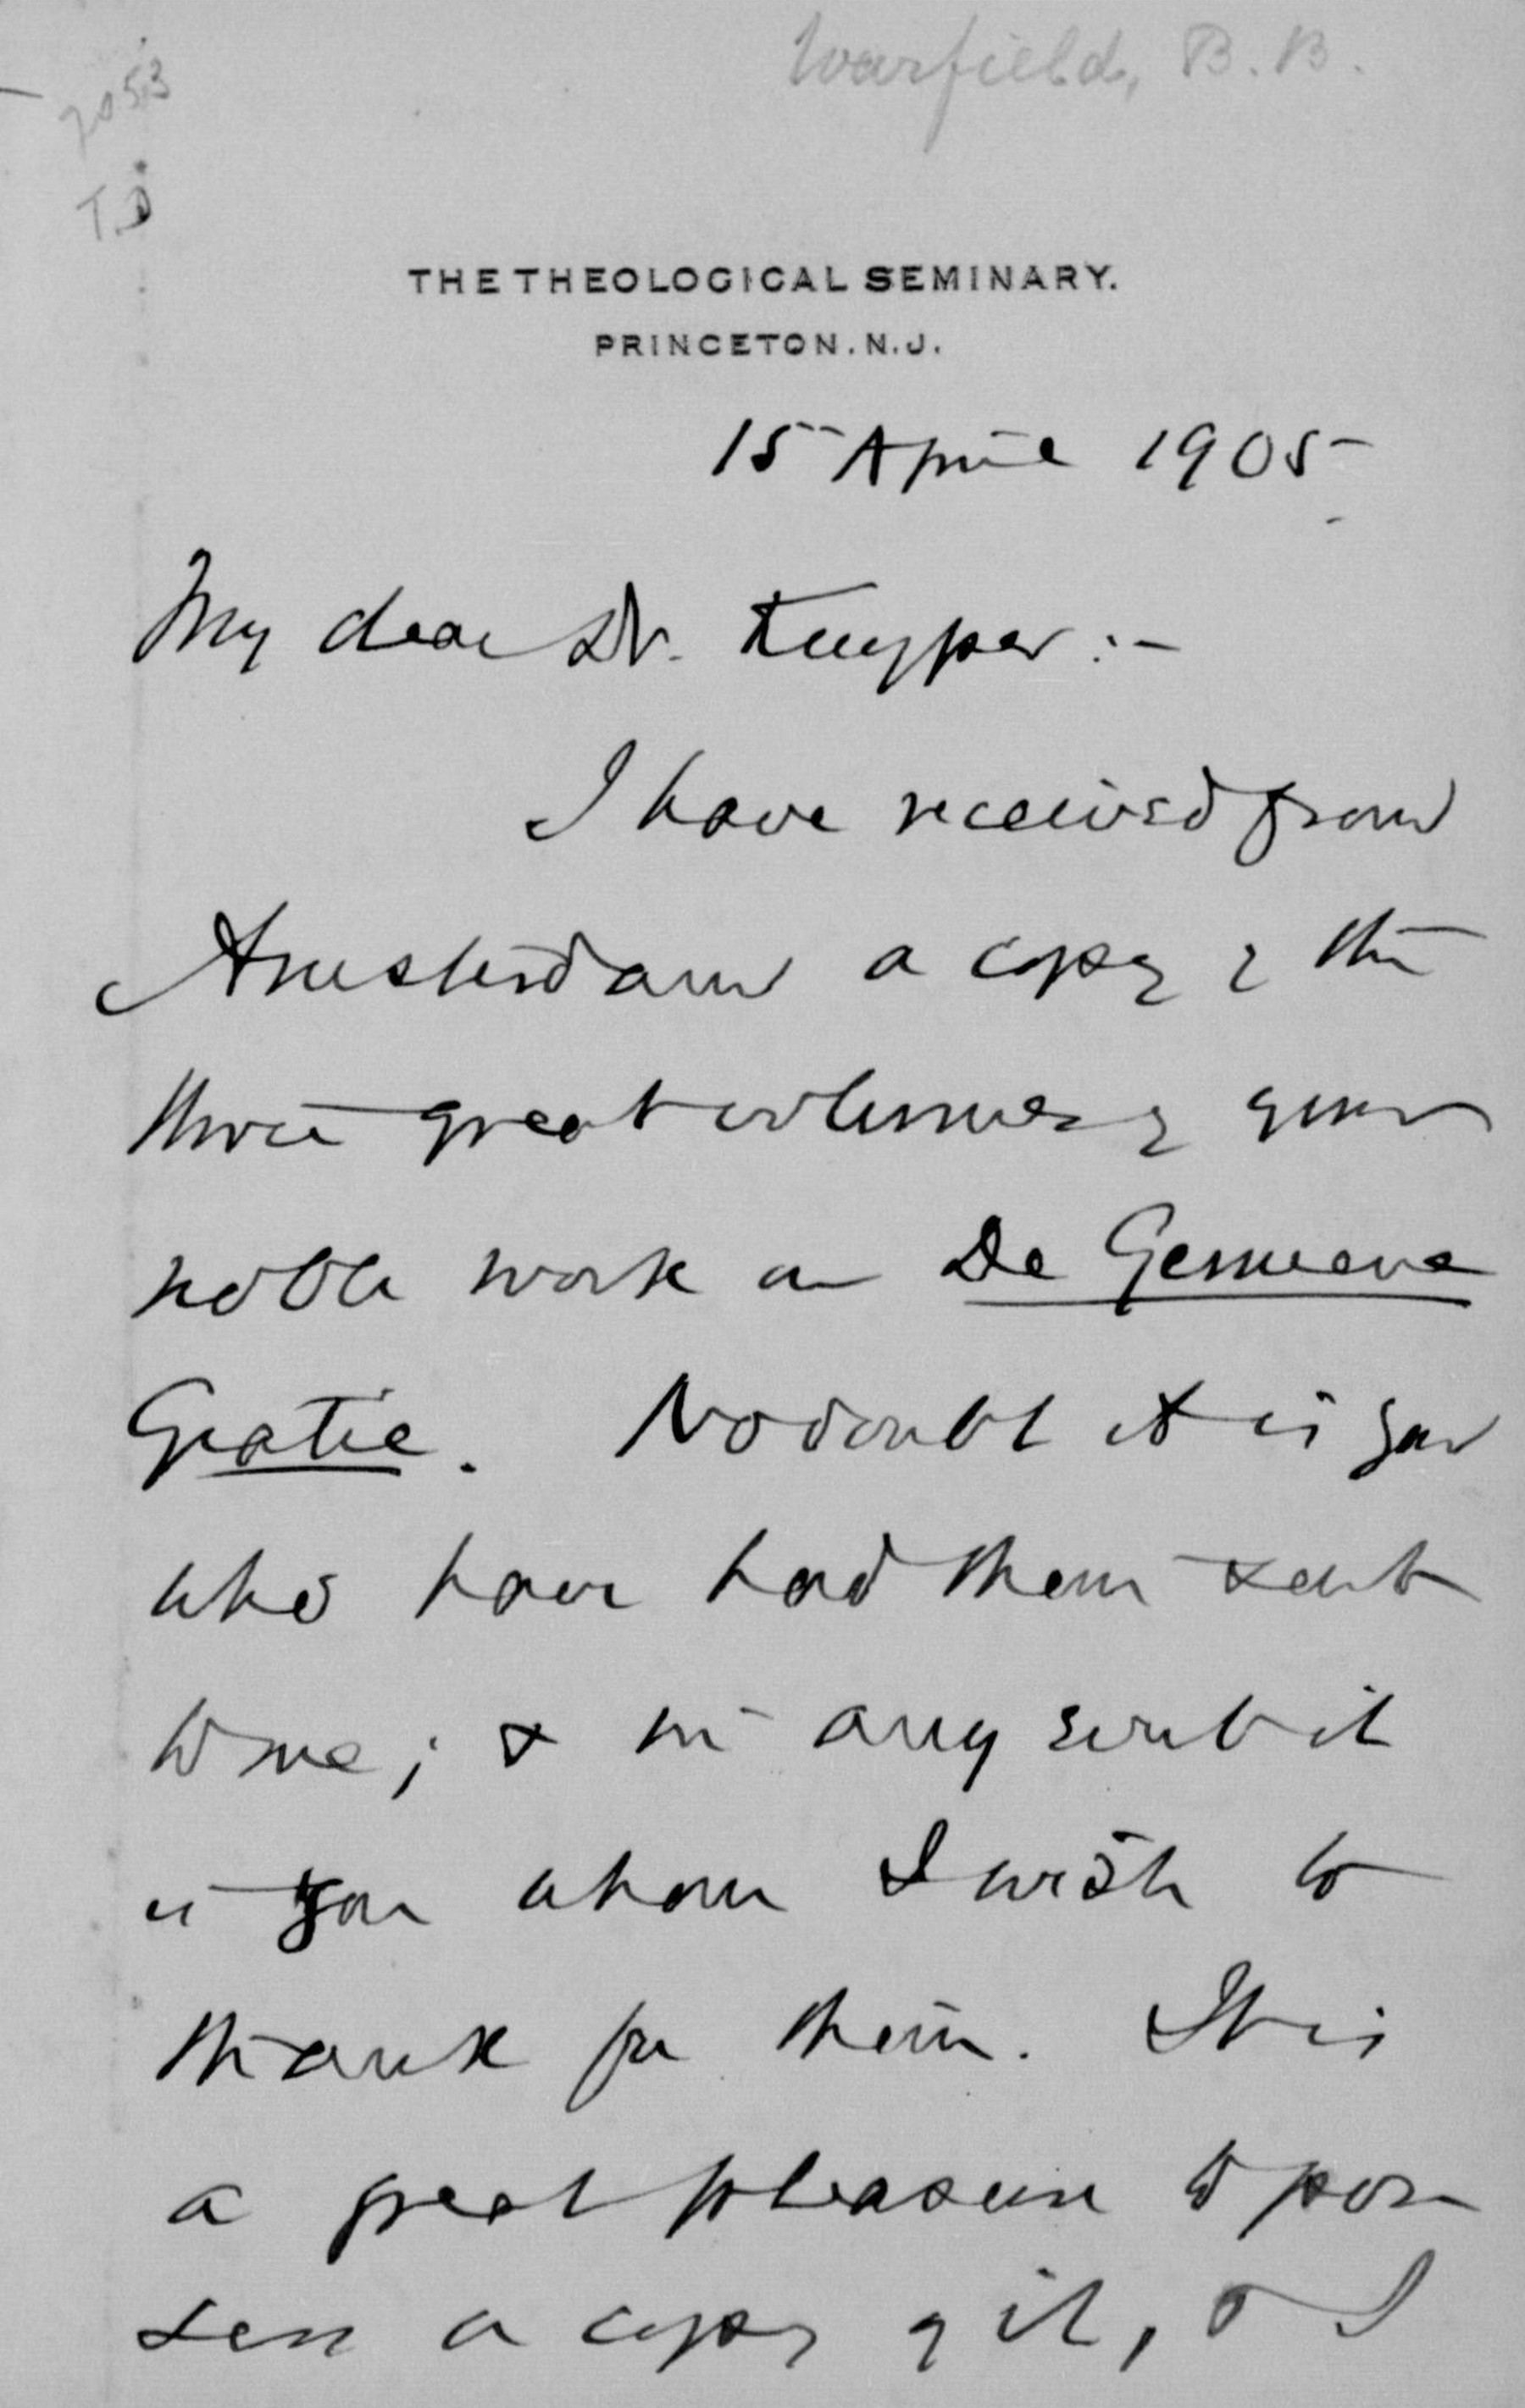 Warfield, B. B.
7053
T.D
THE THEOLOGICAL SEMINARY.
PRINCETON. N. J.
15 April 1905
My dear Dr. Kuyper :-
I have received from
Amsterdam a copy of the
three great volumes of your
noble work on De Gemeene
Gratie. No doubt it is you
who have had them sent
to me; & in any event it
is you whom I wish to
thank for them. It is
a great pleasure to pos-
sess a copy of it, & I